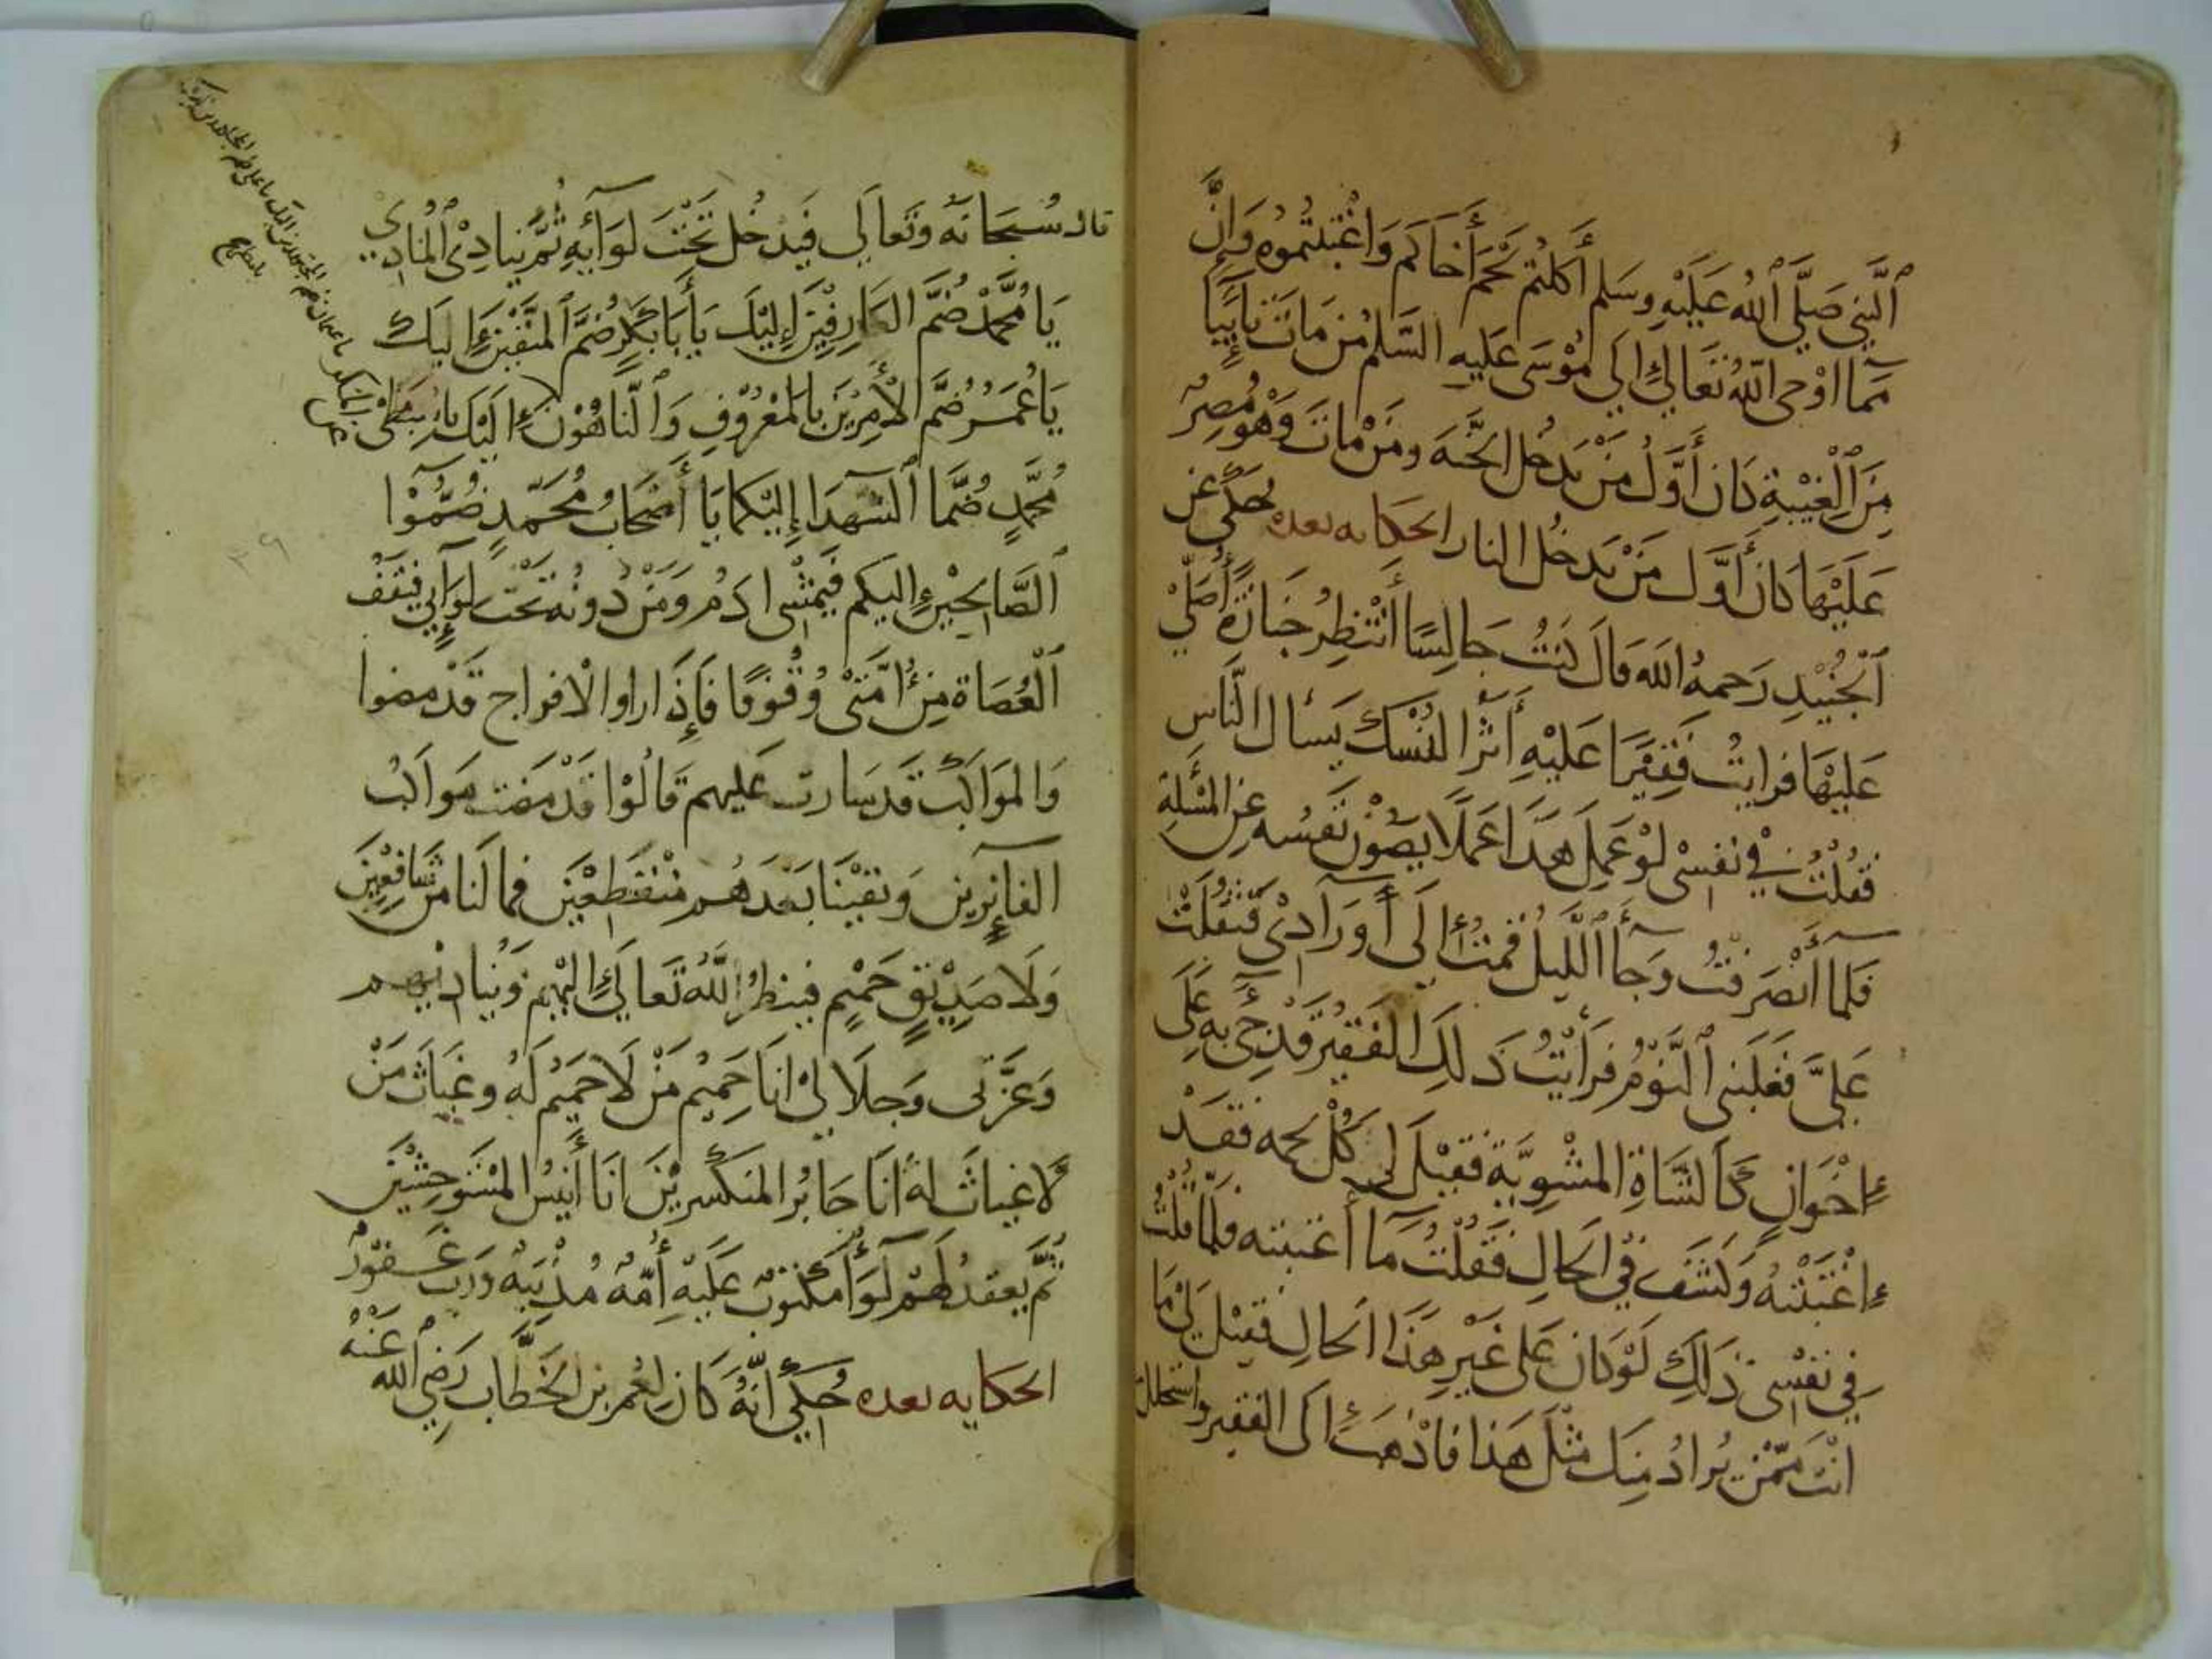 ٱلنَّبِي صَلَّى ٱللهُ عَلَيْهِ وسَلم أَكلتُم لَحْمَ أَخَاكم وَاغْتَبْتُمُوه وَانَّ
مَمَا اوْحى اللهُ تَعَالى إِلَى مُوْسَى عَليهِ السَّلم مَن مَاتَ تَايبًا
مِنَ ٱلْغِيْبَةِ كَان أَوَّلُ مَنْ يَدخُل الجَنَّه ومَنْ مَات وَهْو مُصِرٌ
عَلَيْهَا كَان أَوَّل مَنْ يَدخُل النار الحكايه بعده يحكى عن
ٱلْجُنَيْدِ رَحِمهُ الله قالَ كنتُ جَالِسًا أَنْتَظِرُ جَنازَةً أُصَلِّيْ
عَليْهَا فرايتُ فَقِيْرًا عَلَيْهِ أَثْرُ النُسْك يَسْال النَّاس
فَقُلْتُ فِي نفسْى لَوْ عَمِلَ هَذَا عَمَلًا يَصُوْنُ نَفسُه عن المَسْئَلة
فَلمآ أَنْصَرَفْتُ وَجآ اللَّيل قُمتُ إِلى أَوْرَادِيْ فَثَقُلَتْ
عَلَيَّ فَغَلَبَنى ٱلنَّوْمُ فرَأَيْتُ ذَلِكَ الفَقِيْرَ قَدْ جِئَ بِه عَلَى
إِخْوَانٍ كَالشَاةِ المَشْوِيَّةِ فَقِيْلَ لى كُلْ لحمه فَقَدْ
إِغْتَبْتَهُ وَكُشِفَ فِي الحَالِ فَقُلْتُ مَآ أَغتبته فَلمَّا قُلْتُ
فِي نَفْسِى ذَلِكَ لَوْ كان عَلَى غَيْرِ هَذَا الحَالِ فَقِيْلَ لِيْ مَا
انْتَ مِمَّنْ يُرادُ مِنك مِثْلَ هَذا فَاذْهَبْ إِلى الفقير واستحلل
قال سُبحَانَهُ وَتَعالَى فَيَدْخُل تَحْتَ لوَآئِهِ ثُمَّ يُنَادِيْ ٱلْمُنادِيْ
يَا مُحَمَّدْ ضُمَّ العَارِفِيْنَ إِلَيْكَ يَا أَبَا بَكْرٍ ضُمَّ ٱلمُتَّقِيْنَ إِليَكَ
يَا عُمَرُ ضُمَّ الأَمِرِيْنَ بِالمَعْرُوْفِ وَٱلنَّاهُوْنَ إِلَيْكَ يَا سِبْطَىْ
مُحَمَّدٍ ضُمَّا ٱلشُّهَدَا إِلَيْكُمَا يَا أَصْحَابُ مُحَمَّدٍ ضُمُّوْا
ٱلصَّالحِيْنَ إِليكم فَيَمْشِى ادَمُ وَمَنْ دُونهُ تَحْتَ لِوَآئِي فَيَقِفُ
ٱلْعُصَاةِ مِنْ أُمَّتَىْ وُقُوْفًا فَإِذَا راوا الافواج قَدْ مضوا
وَالمَوَاكِبْ قَدسَارت عَليهم قَالُوْا قَدْ مَضَت مَواكبُ
الفَآئِزِين وَبَقيْنَا بَعْدَهُم مُنْقَطِعْيْن فمالَنا من شَافِعِيْنَ
وَلَا صَدِيْقٍ حَمْيمٍ فينظرُ اللَّهُ تَعَالى إِليْهِم وَيُنادِيْهم
وَعَزَّتى وَجلَالِيْ انَا حَمِيْمُ مَنْ لَا حَمِيْمُ لَهُ وغيَاثَ مَنْ
لَا غِياثَ لهُ أَنَا جَابرُ المُنكَسرِيْنَ انَا أَنِيْسُ المُسْتَوحِشِيْنَ
ثُمَّ يعقدُ لَهُمْ لَوَآ مَكْتُوْبٌ عَلَيْهِ أُمَّهْ مُذْنِبَهْ وَرَب غَفُوْرٌ
الحكايه بعده حُكِيْ أَنَّهُ كَانَ لِعُمَر بن الخَطَّاب رَضِيَ الله عَنْهُ